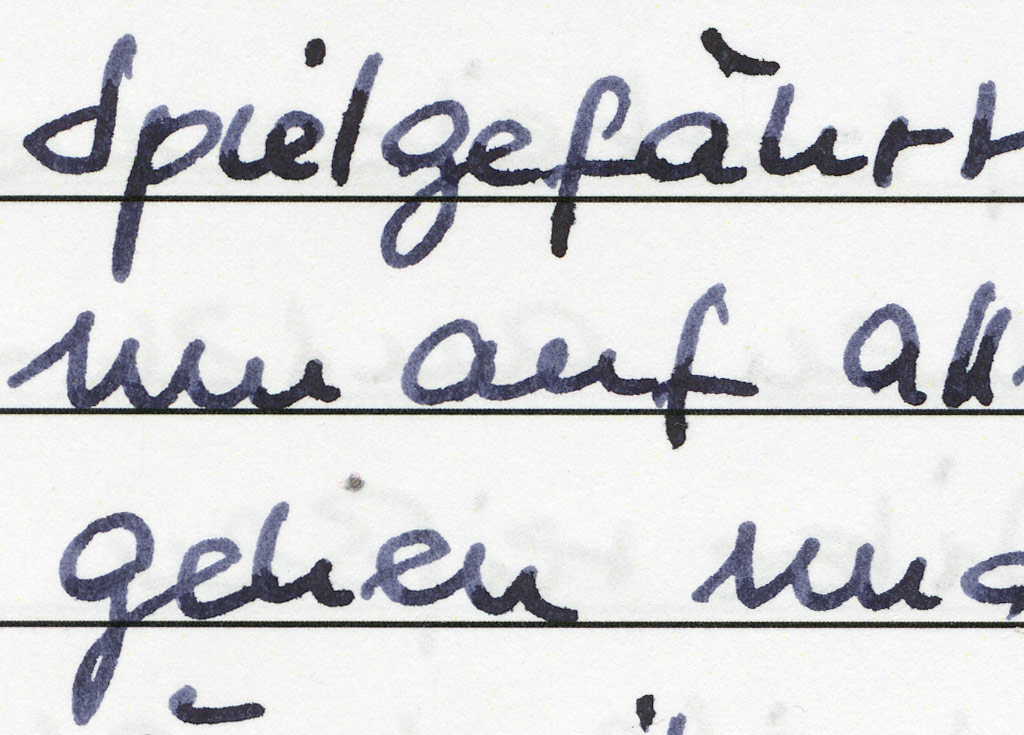 Spielgefährt
nun auf all
gehen und